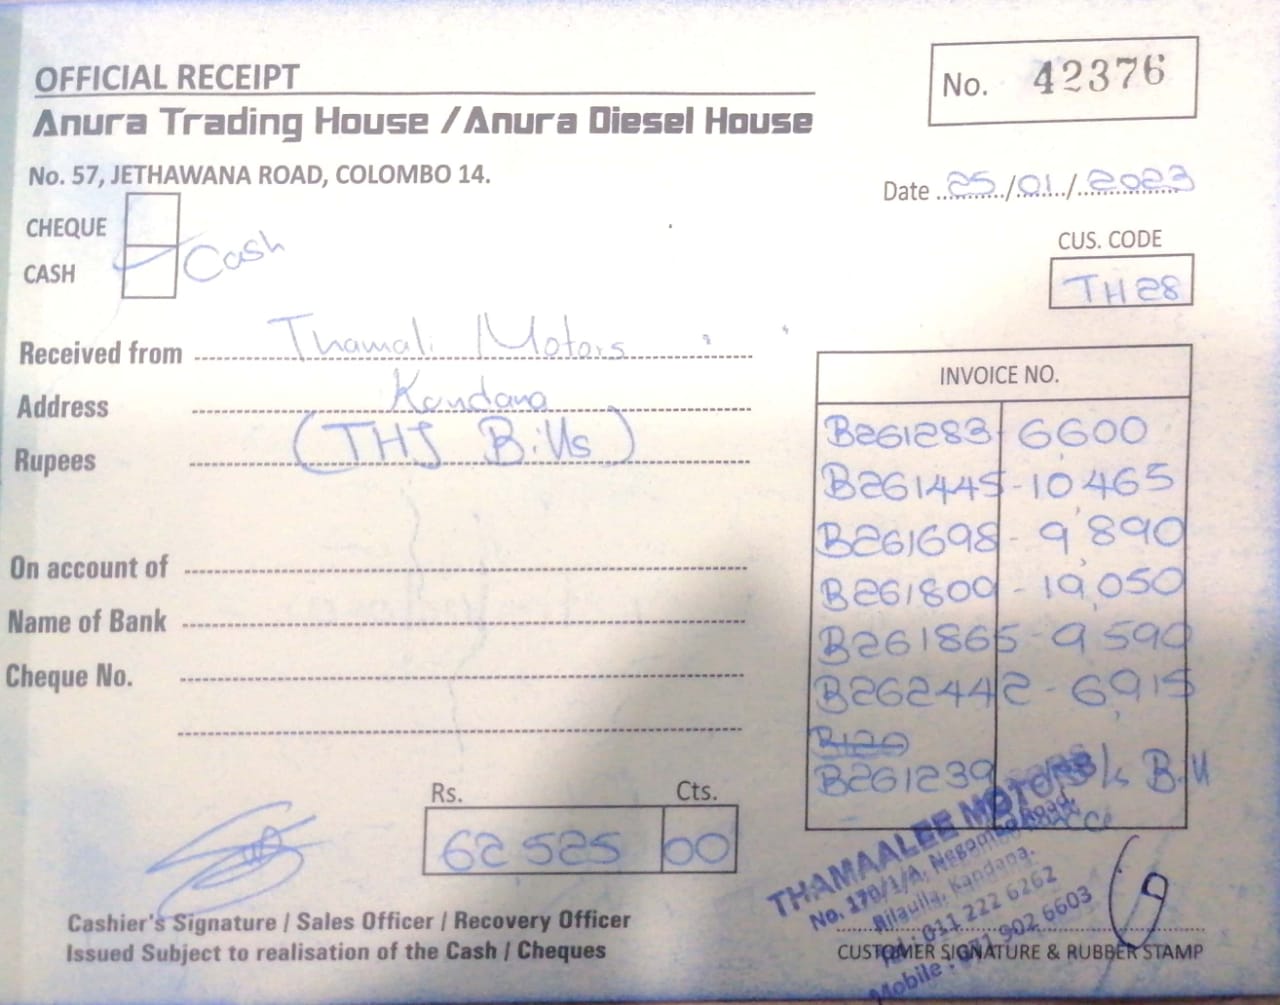 OFFICIAL RECEIPT
No. 42376
Anura Trading House / Anura Diesel House
No. 57, JETHAWANA ROAD, COLOMBO 14.
Date 25/01/2023
CHEQUE
CASH Cash
CUS. CODE
TH28
Received from Thamali Motors
Address Kandana
Rupees (THJ Bills)
On account of
Name of Bank
Cheque No.
INVOICE NO.
B261283 - 6,600
B261445 - 10,465
B261698 - 9,890
B261800 - 19,050
B261865 - 9,590
B262442 - 6,915
B126
B261239
Rs. Cts.
62 525 00
Cashier's Signature / Sales Officer / Recovery Officer
Issued Subject to realisation of the Cash / Cheques
THAMAALEE MOTORS
No. 170/1/A, Negombo Road,
Rilaulla, Kandana.
Tel : 011 222 6262
Mobile : 077 902 6603
CUSTOMER SIGNATURE & RUBBER STAMP